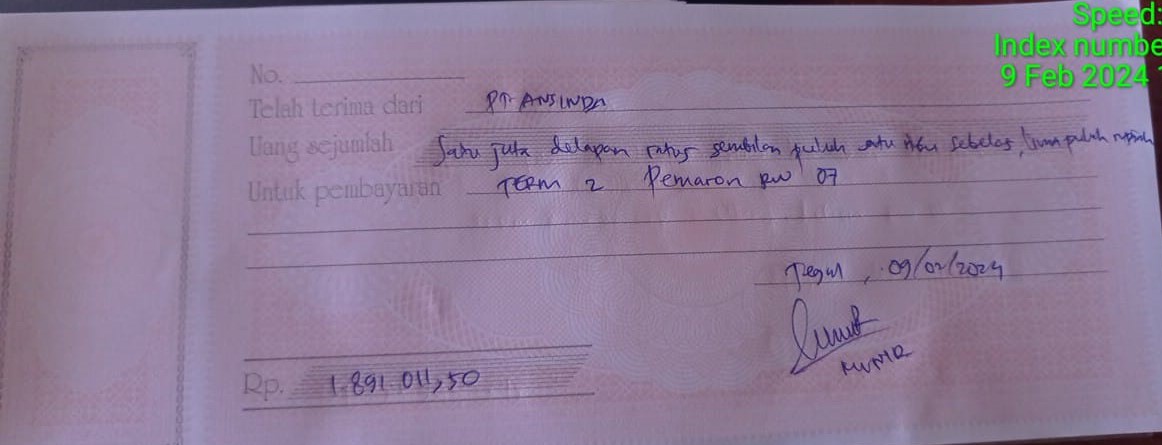 Speed:
Index numbe
9 Feb 2024
No.
Telah terima dari PT ANSINDA
Uang sejumlah Satu juta delapan ratus sembilan puluh satu ribu sebelas, lima puluh rupiah
Untuk pembayaran TERM 2 Pemaron RW 07
Tegal, 09/02/2024
MUNIR
Rp. 1.891.011,50